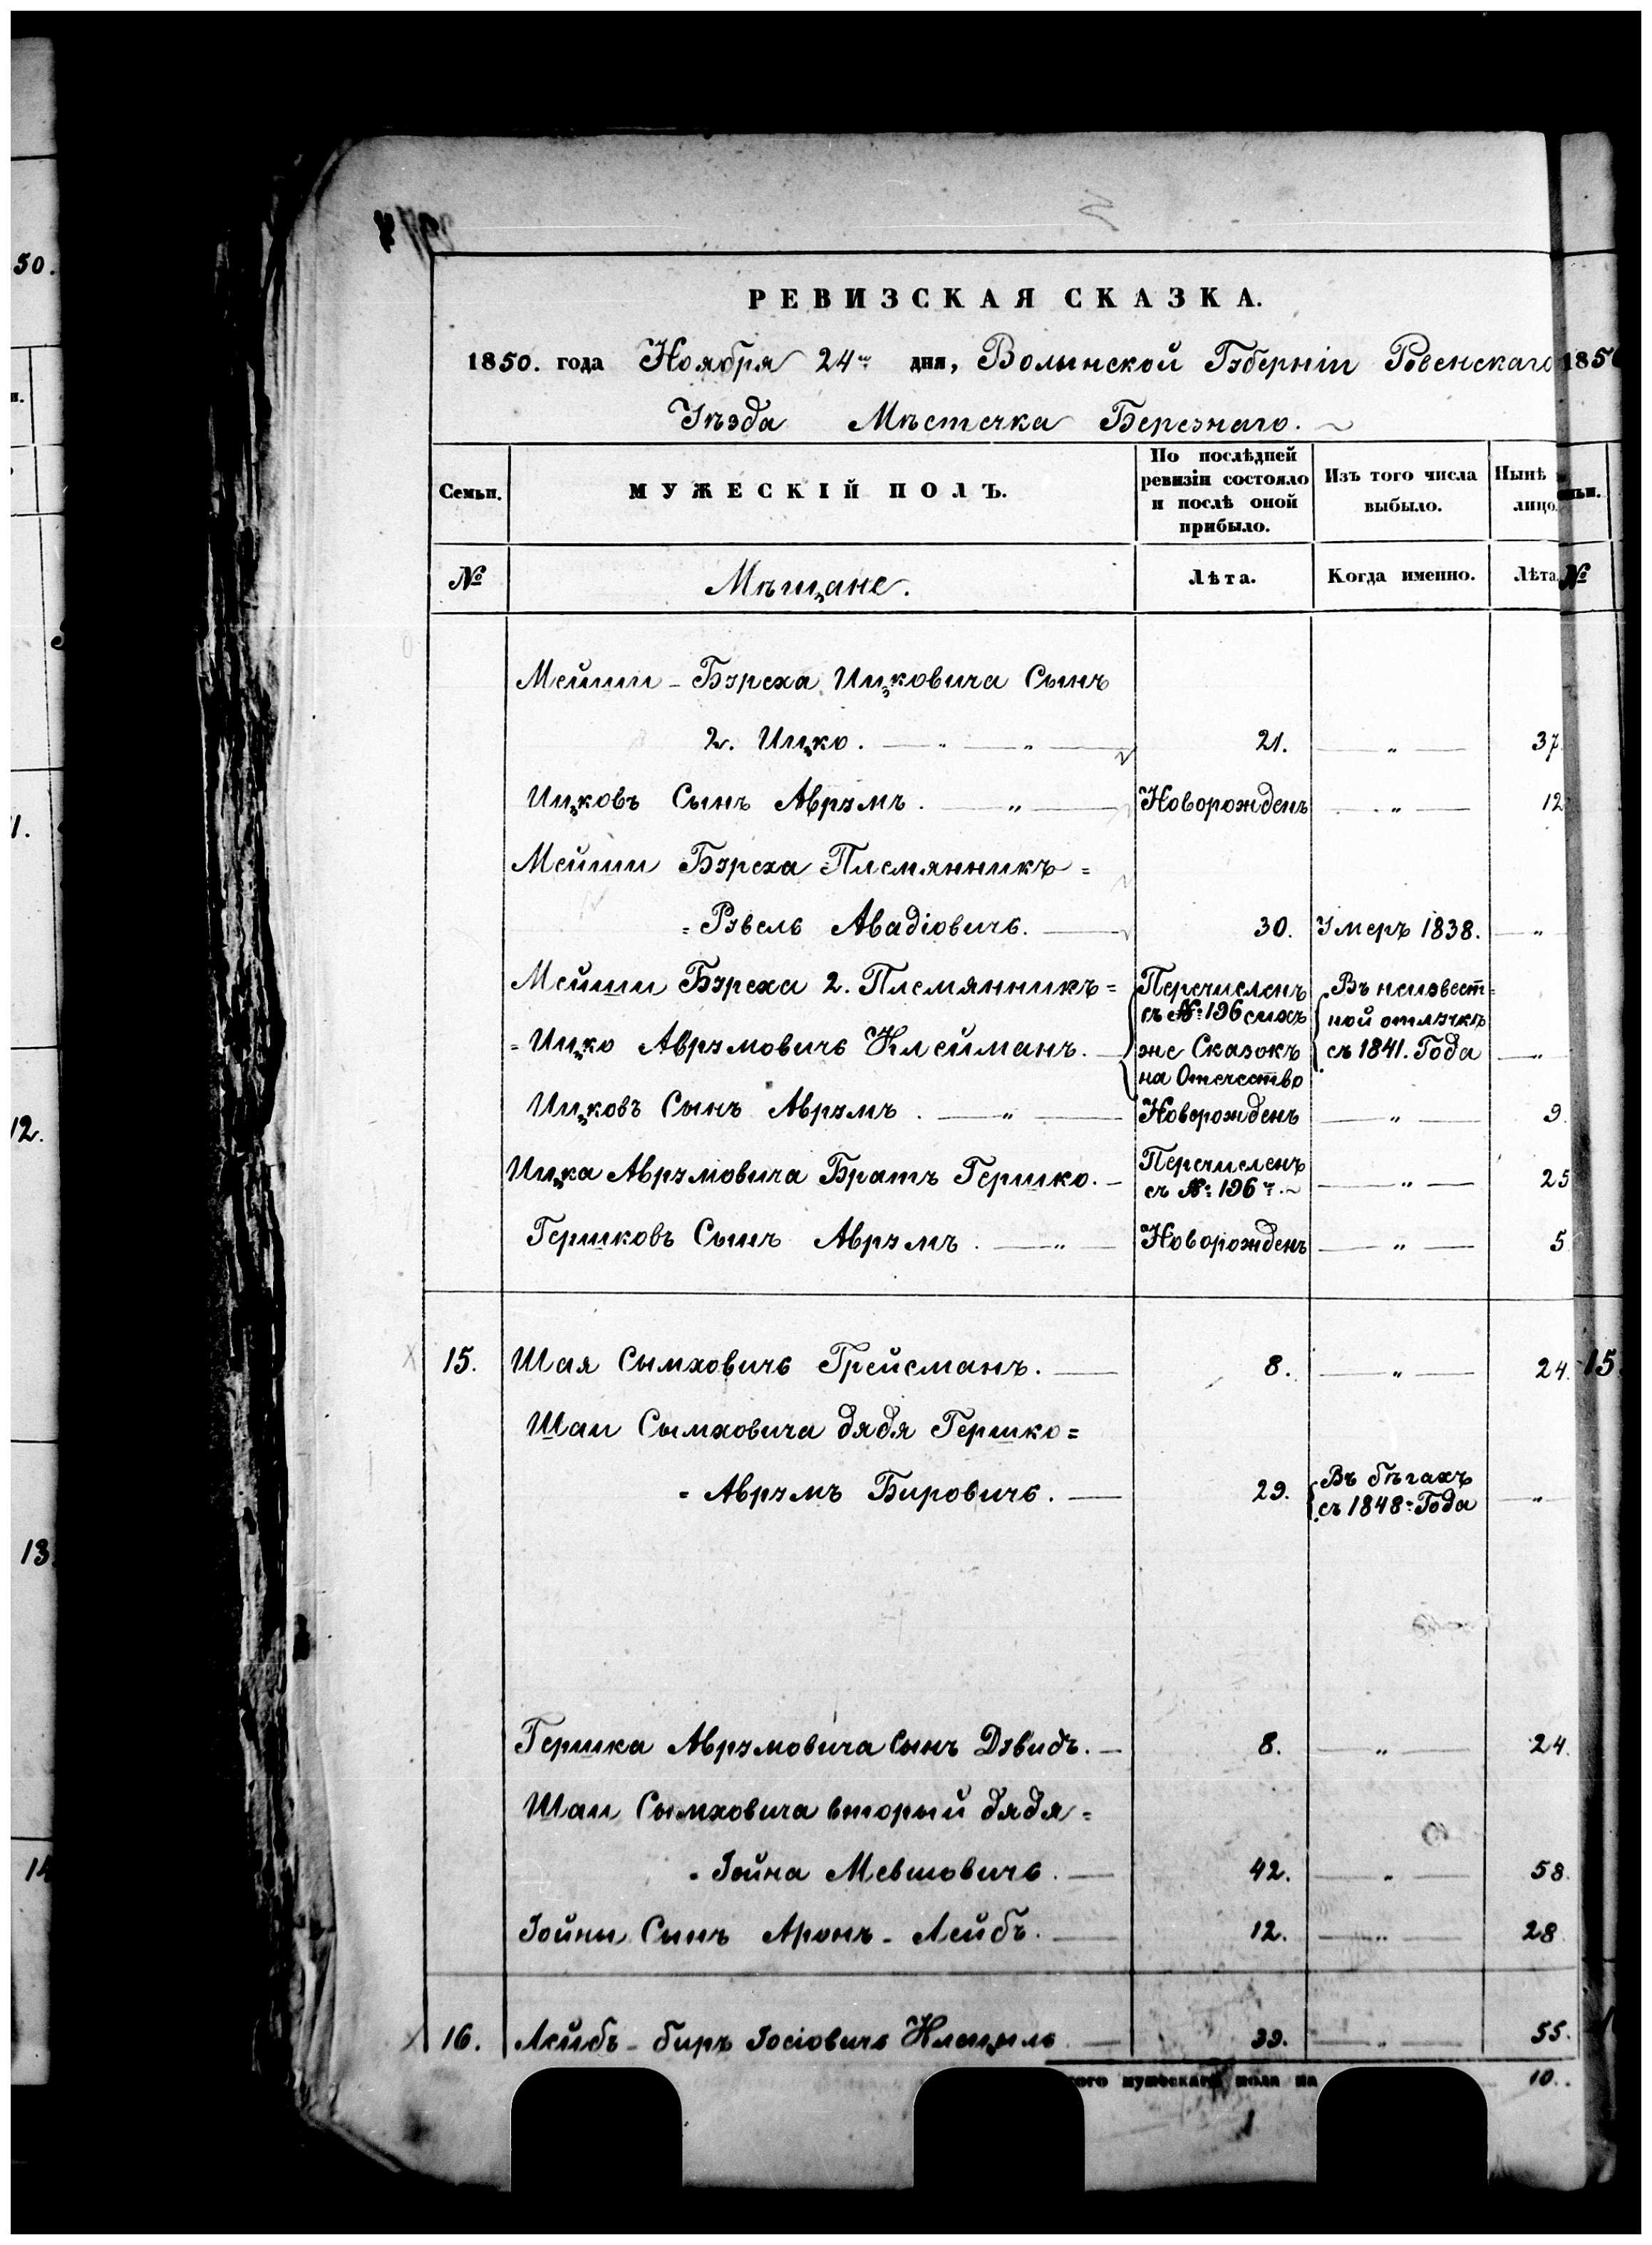 50.
1.
12.
13.
14
РЕВИЗСКАЯ СКАЗКА.
1850. года Ноября 24го дня, Волынской Губерніи Ровенскаго
Уѣзда Мѣстечка Березнаго.
Семьи. МУЖЕСКІЙ ПОЛЪ. По послѣдней ревизіи состояло и послѣ оной прибыло. Изъ того числа выбыло. Нынѣ лицо.
№ Мѣщане. Лѣта. Когда именно. Лѣта. №
Мейши - Буреха Ицковича Сынъ
2. Ицко. — " — " — 21. — " — 37
Ицковъ Сынъ Аврумъ. — " — Новорожденъ — " — 12
Мейши Буреха Племянникъ =
= Рувель Авадіовичъ. — 30. Умеръ 1838. — "
Мейши Буреха 2. Племянникъ = Перечисленъ Въ неизвест=
съ №: 196 сихъ ной отлучкѣ
= Ицко Аврумовичь Клейманъ. — же Сказокъ съ 1841. Года — "
на Отечество
Ицковъ Сынъ Аврумъ. — " — Новорожденъ — " — 9.
Ицка Аврумовича Братъ Гершко. — Перечисленъ съ №: 196го. ~ — " — 25
Гершковъ Сынъ Аврумъ. — " — Новорожденъ — " — 5
15. Шая Сымховичь Грейсманъ. — 8. — " — 24. 15
Шаи Сымховича дядя Гершко =
= Аврумъ Бировичь. — 29. Въ бѣгахъ съ 1848: Года — "
Гершка Аврумовича Сынъ Дувидъ. — 8. — " — 24.
Шаи Сымховича вторый дядя =
= Іойна Мевшовичь. — 42. — " — 58.
Іойны Сынъ Аронъ - Лейбъ. — 12. — " — 28
16. Лейбъ - биръ Іосіовичь — 39. — " — 55.
мужескаго пола на 10.